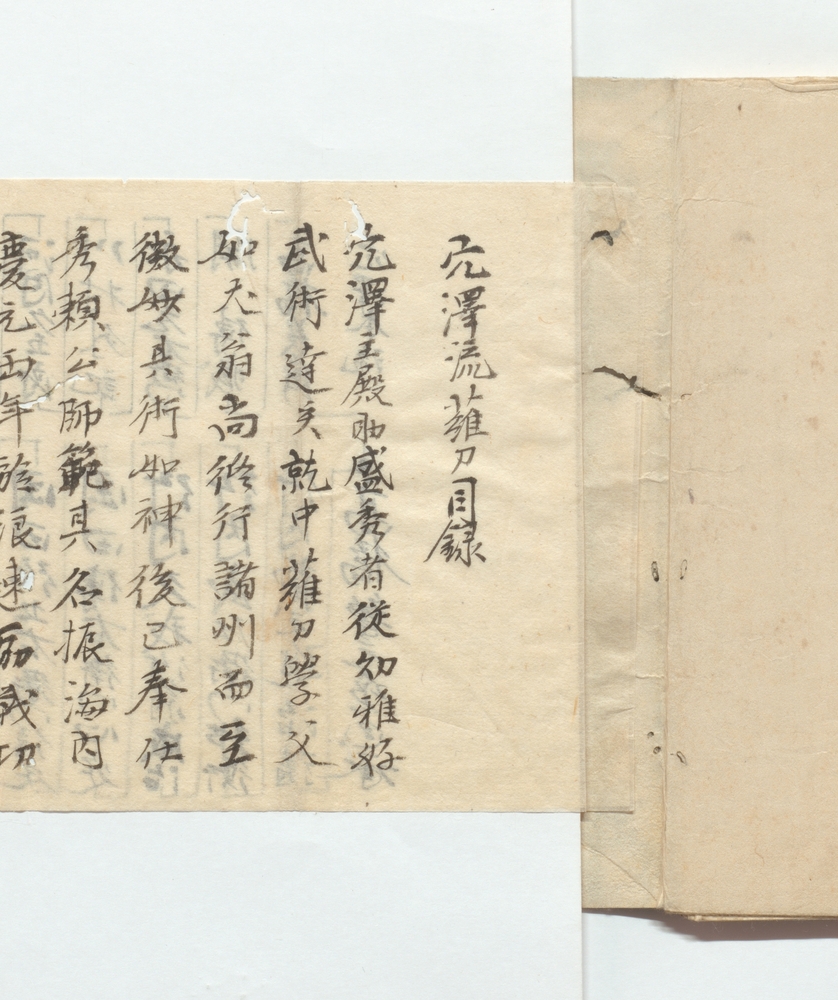 穴澤流薙刀目録
穴澤主殿助盛秀者従幼雅好
武術達矣就中薙刀學父
如天翁尚修行諸州而至
微妙其術如神後已奉仕
秀頼公師範其名振海内
慶元両年於浪速励戦功